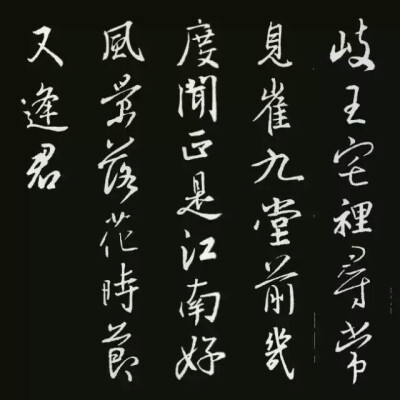 歧王宅裡尋常
見崔九堂前幾
度聞正是江南好
風景落花時節
又逢君